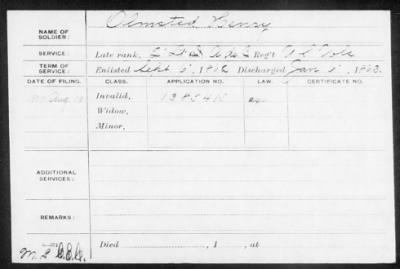 NAME OF SOLDIER: Olmsted Henry
SERVICE: Late rank, Reg't
TERM OF SERVICE: Enlisted Sept 5, 1862 Discharged Jan 5, 1863.
DATE OF FILING. CLASS. APPLICATION NO. LAW. CERTIFICATE NO.
Aug Invalid, 1285410
Widow,
Minor,
ADDITIONAL SERVICES:
REMARKS:
Died , 1 , at